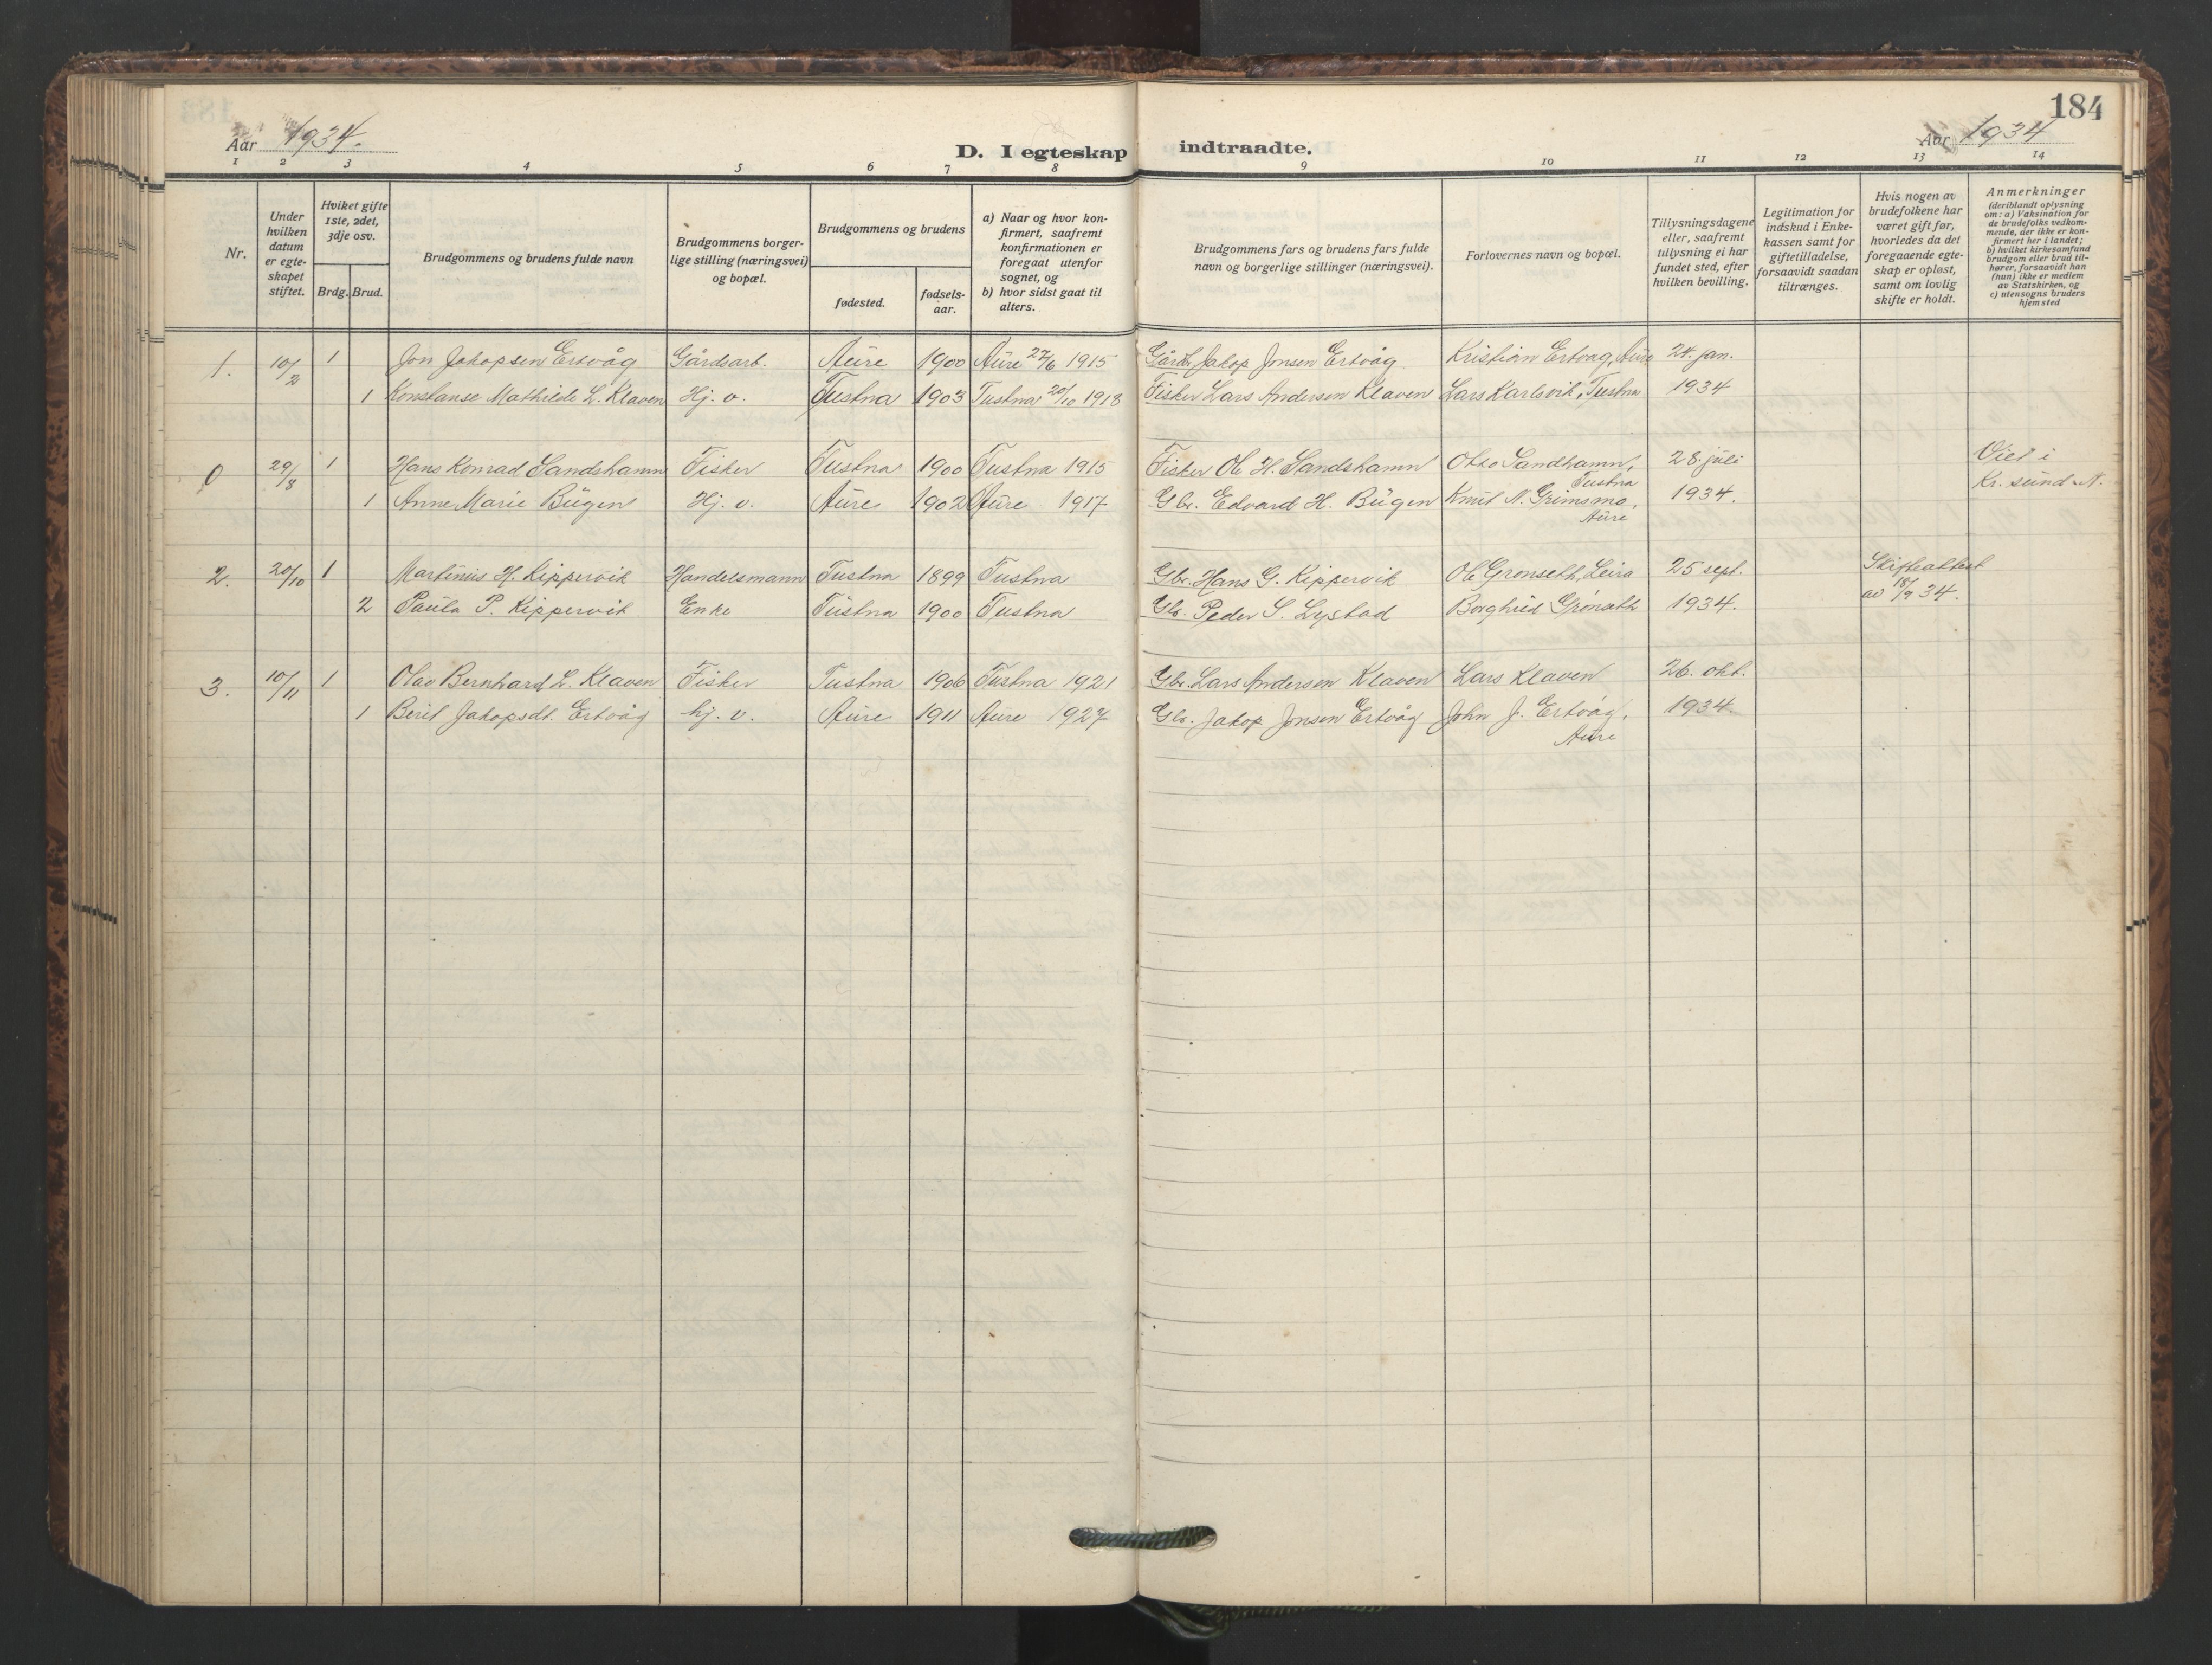 184
Aar 1934.
D. I egteskap indtraadte.
Aar 1934
1 2 3 4 5 6 7 8 9 10 11 12 13 14
Nr.
Under hvilken datum er egteskapet stiftet.
Hvilket gifte 1ste, 2det, 3dje osv.
Brdg. Brud.
Brudgommens og brudens fulde navn
Brudgommens borgerlige stilling (næringsvei) og bopæl.
Brudgommens og brudens
fødested.
fødselsaar.
a) Naar og hvor konfirmert, saafremt konfirmationen er foregaat utenfor sognet, og
b) hvor sidst gaat til alters.
Brudgommens fars og brudens fars fulde navn og borgerlige stillinger (næringsvei).
Forlovernes navn og bopæl.
Tillysningsdagene eller, saafremt tillysning ei har fundet sted, efter hvilken bevilling.
Legitimation for indskud i Enkekassen samt for giftetilladelse, forsaavidt saadan tiltrænges.
Hvis nogen av brudefolkene har været gift før, hvorledes da det foregaaende egteskap er opløst, samt om lovlig skifte er holdt.
Anmerkninger (deriblandt oplysning om: a) Vaksination for de brudefolks vedkommende, der ikke er konfirmert her i landet; b) hvilket kirkesamfund brudgom eller brud tilhører, forsaavidt han (hun) ikke er medlem av Statskirken, og c) utensogns bruders hjemsted
1. 10/2 1 Jon Jakopsen Ertvåg Gårdsarb. Aure 1900 Aure 27/6 1915 Gårdbr. Jakop Jonsen Ertvåg Kristian Ertvåg, Aure 24. jan.
1 Konstanse Mathilde L. Klaven Hj. v. Tustna 1903 Tustna 20/10 1918 Fisker Lars Andersen Klaven Lars Karlsvik, Tustna 1934
0 29/8 1 Hans Konrad Sandshamn Fisker Tustna 1900 Tustna 1915 Fisker Ole H. Sandshamn Otto Sandhamn, Tustna 28. juli Viet i
1 Anne Marie Bugen Hj. v. Aure 1902 Aure 1917 Gbr. Edvard H. Bugen Knut N. Grimsmo, Aure 1934. Kr. sund N.
2. 20/10 1 Martinus H. Kippervik Handelsmann Tustna 1899 Tustna Gbr. Hans G. Kippervik Ole Grønseth, Leira 25 sept. Skifteattest
2 Paula P. Kippervik Enke Tustna 1900 Tustna Gbr. Peder S. Lystad Borghild Grønseth 1934. av 18/9 34.
3. 10/11 1 Olav Bernhard L. Klaven Fisker Tustna 1906 Tustna 1921 Gbr. Lars Andersen Klaven Lars Klaven 26. okt.
1 Berit Jakopsdt. Ertvåg hj. v. Aure 1911 Aure 1927 Gbr. Jakop Jonsen Ertvåg John J. Ertvåg, Aure 1934.